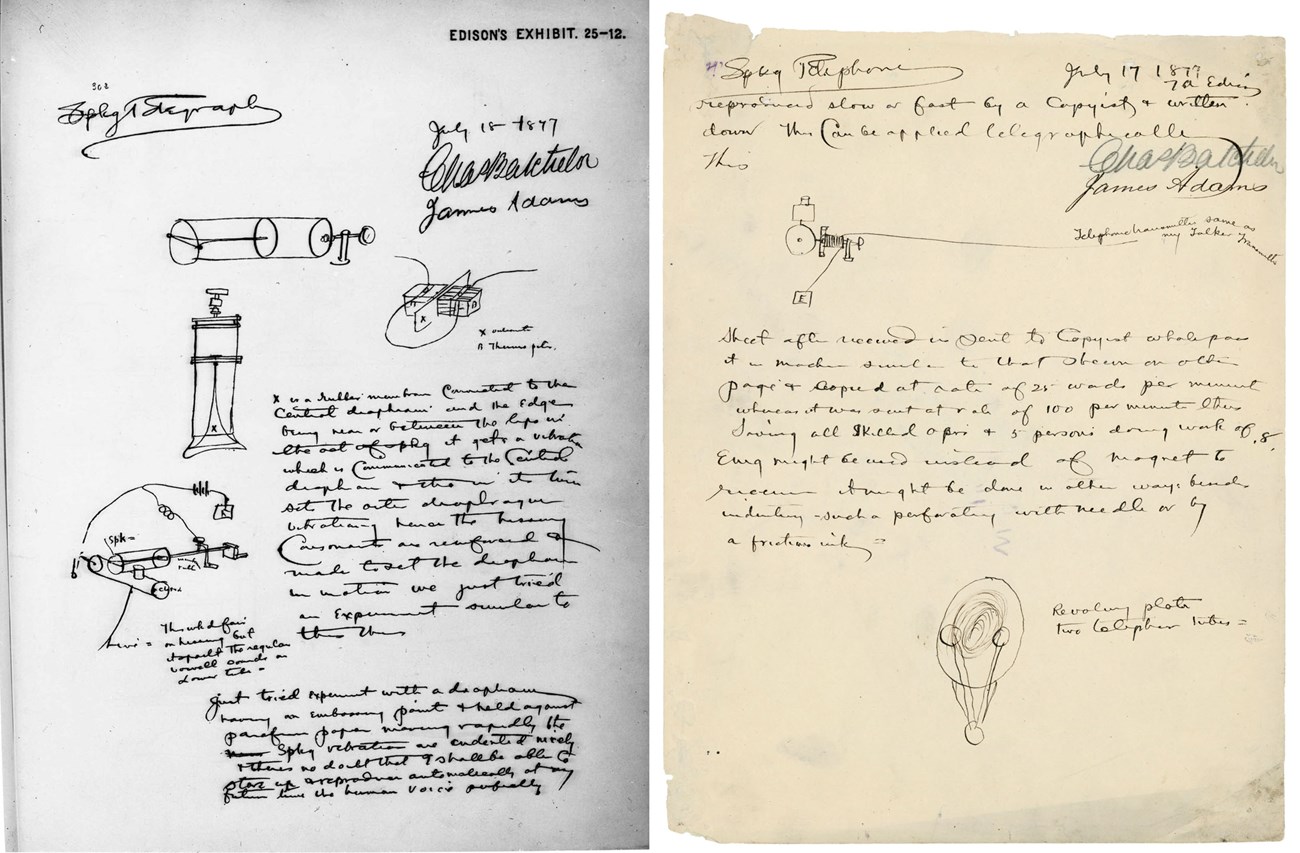 EDISON'S EXHIBIT. 25–12.
Spkg Telegraph
July 18 1877
Chas Batchelor
James Adams
X
X
N Thermo pile.
X is a rubber membran Connected to the
Central diaphram and the Edge
being near or between the lips in
the act of spkg it gets a vibration
which is Communicated to the Central
diaphram & this in its turn
set the outer diaphragm
vibrating hence the hissing
Consonants are reinforced &
made to set the diaphram
in motion we just tried
an Experiment similar to
this
X
Spk=
This whd fair
on hissing but
the regular
vowell sounds as
down tube =
Just tried experiment with a diaphram
having an Embossing point & held against
parafin paper moving rapidly the
Spkg vibrations are indented nicely
& theres no doubt that I shall be able to
store up & reproduce automatically at any
future time the human voice perfectly
Spkg Telephone
July 17 1877
TA Edison
reproduced slow or fast by a Copyist & written
down This Can be applied telegraphically
This
Chas Batchelor
James Adams
Telephone transmitter same as
my Talker Transmitter
E
Sheet after received is sent to Copyist who pass
it in machine similar to that shown on other
page & Copied at rate of 25 words per minute
whereas it was sent at rate of 100 per minute thus
Saving all Skilled oprs & 5 persons doing work of 8.
Emg might be used instead of magnet to
receive it might be done in other ways besides
indenting such a perforating with needle or by
a friction ink =
Revolving plate
Two telephon tubes =